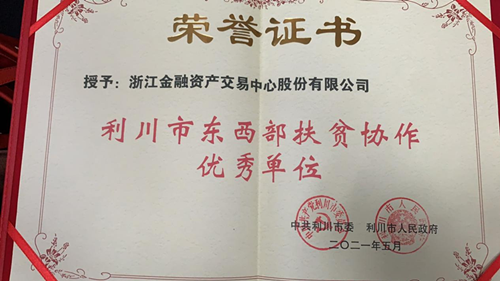 荣誉证书
授予：浙江金融资产交易中心股份有限公司
利川市东西部扶贫协作
优秀单位
中共利川市委 利川市人民政府
二〇二一年五月